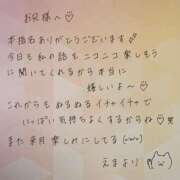 お兄様へ♡
本指名ありがとうございます
今日も私の話をニコニコ楽しそう
に聞いてくれるから本当に
嬉しいよ〜♡
これからもぬるぬるイチャイチャで
にっぱい気持ちよくするからね
また来月楽しみにしてる(ω)
えまより